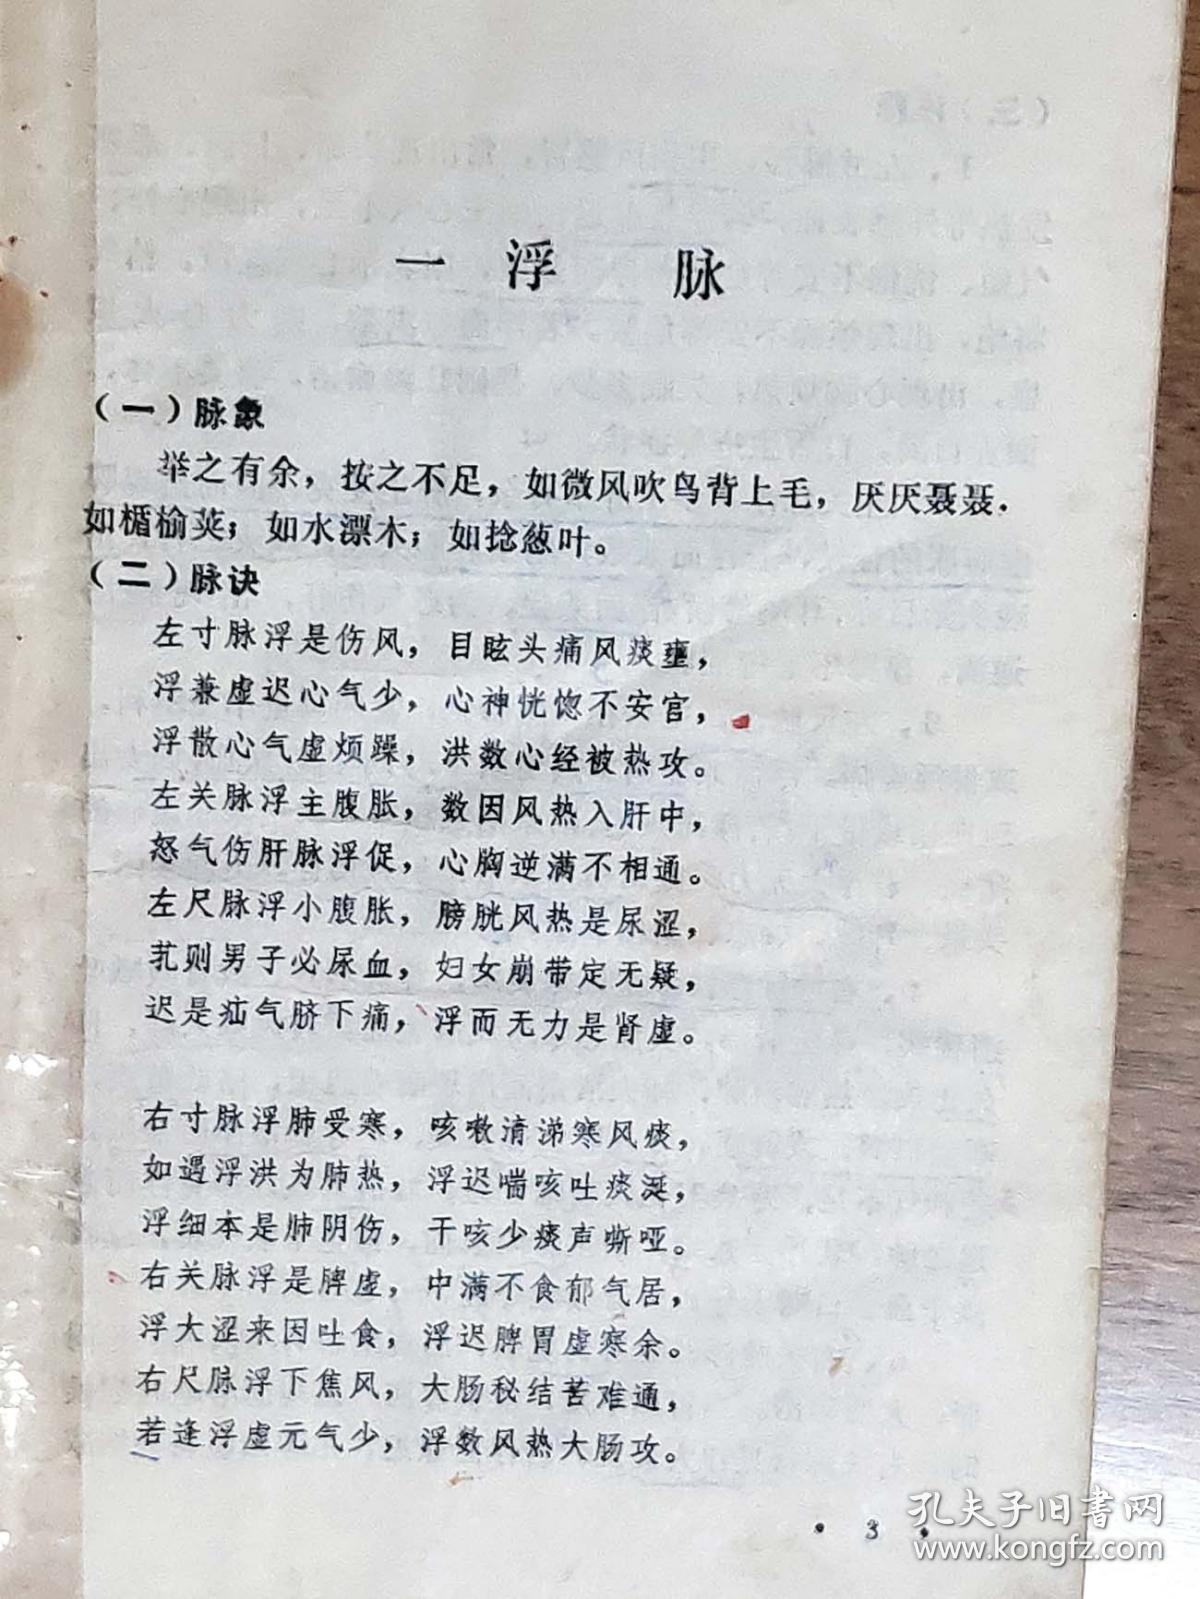 一 浮 脉
（一）脉象
举之有余，按之不足，如微风吹鸟背上毛，厌厌聂聂.
如楯榆荚；如水漂木；如捻葱叶。
（二）脉诀
左寸脉浮是伤风，目眩头痛风痰壅，
浮兼虚迟心气少，心神恍惚不安官，
浮散心气虚烦躁，洪数心经被热攻。
左关脉浮主腹胀，数因风热入肝中，
怒气伤肝脉浮促，心胸逆满不相通。
左尺脉浮小腹胀，膀胱风热是尿涩，
芤则男子必尿血，妇女崩带定无疑，
迟是疝气脐下痛，浮而无力是肾虚。
右寸脉浮肺受寒，咳嗽清涕寒风痰，
如遇浮洪为肺热，浮迟喘咳吐痰涎，
浮细本是肺阴伤，干咳少痰声嘶哑。
右关脉浮是脾虚，中满不食郁气居，
浮大涩来因吐食，浮迟脾胃虚寒余。
右尺脉浮下焦风，大肠秘结苦难通，
若逢浮虚元气少，浮数风热大肠攻。
· 3 ·
孔夫子旧书网
www.kongfz.com